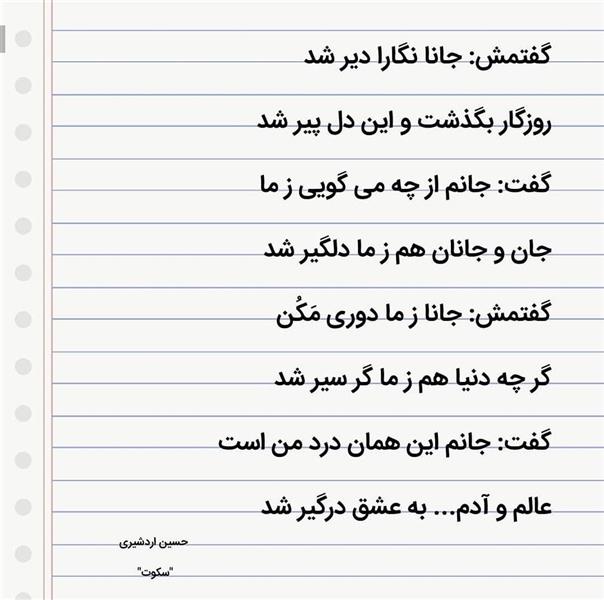 گفتمش: جانا نگارا دیر شد
روزگار بگذشت و این دل پیر شد
گفت: جانم از چه می گویی ز ما
جان و جانان هم ز ما دلگیر شد
گفتمش: جانا ز ما دوری مَکُن
گر چه دنیا هم ز ما گر سیر شد
گفت: جانم این همان درد من است
عالم و آدم... به عشق درگیر شد
حسین اردشیری
"سکوت"